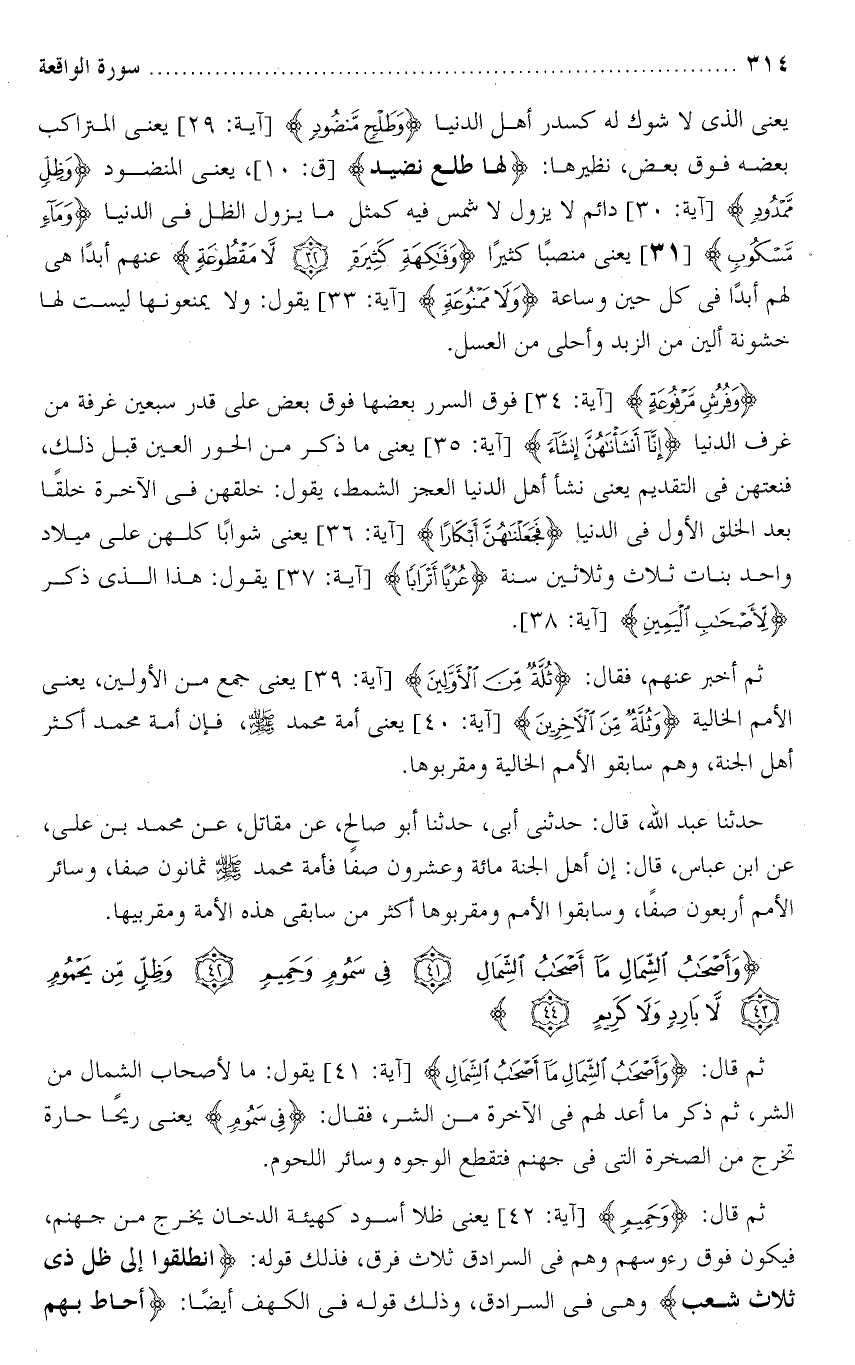 ٣١٤ ........................................................................ سورة الواقعة
يعنى الذى لا شوك له كسدر أهل الدنيا ﴿وَطَلْحٍ مَّنضُودٍ﴾ [آية: ٢٩] يعنى المتراكب
بعضه فوق بعض، نظيرها: ﴿لها طلع نضيد﴾ [ق: ١٠]، يعنى المنضود ﴿وَظِلٍّ
مَّمْدُودٍ﴾ [آية: ٣٠] دائم لا يزول لا شمس فيه كمثل ما يزول الظل فى الدنيا ﴿وَمَآءٍ
مَّسْكُوبٍ﴾ [٣١] يعنى منصبًا كثيرًا ﴿وَفَٰكِهَةٍ كَثِيرَةٍ ٣٢ لَّا مَقْطُوعَةٍ﴾ عنهم أبدًا هى
لهم أبدًا فى كل حين وساعة ﴿وَلَا مَمْنُوعَةٍ﴾ [آية: ٣٣] يقول: ولا يمنعونها ليست لها
خشونة ألين من الزبد وأحلى من العسل.
﴿وَفُرُشٍ مَّرْفُوعَةٍ﴾ [آية: ٣٤] فوق السرر بعضها فوق بعض على قدر سبعين غرفة من
غرف الدنيا ﴿إِنَّآ أَنشَأْنَٰهُنَّ إِنشَآءً﴾ [آية: ٣٥] يعنى ما ذكر من الحور العين قبل ذلك،
فنعتهن فى التقديم يعنى نشأ أهل الدنيا العجز الشمط، يقول: خلقهن فى الآخرة خلقًا
بعد الخلق الأول فى الدنيا ﴿فَجَعَلْنَٰهُنَّ أَبْكَارًا﴾ [آية: ٣٦] يعنى شوابًا كلهن على ميلاد
واحد بنات ثلاث وثلاثين سنة ﴿عُرُبًا أَتْرَابًا﴾ [آية: ٣٧] يقول: هذا الذى ذكر
﴿لِّأَصْحَٰبِ ٱلْيَمِينِ﴾ [آية: ٣٨].
ثم أخبر عنهم، فقال: ﴿ثُلَّةٌ مِّنَ ٱلْأَوَّلِينَ﴾ [آية: ٣٩] يعنى جمع من الأولين، يعنى
الأمم الخالية ﴿وَثُلَّةٌ مِّنَ ٱلْأَخِرِينَ﴾ [آية: ٤٠] يعنى أمة محمد ﷺ، فإن أمة محمد أكثر
أهل الجنة، وهم سابقو الأمم الخالية ومقربوها.
حدثنا عبد الله، قال: حدثنى أبى، حدثنا أبو صالح، عن مقاتل، عن محمد بن على،
عن ابن عباس، قال: إن أهل الجنة مائة وعشرون صفًا فأمة محمد ﷺ ثمانون صفا، وسائر
الأمم أربعون صفًا، وسابقوا الأمم ومقربوها أكثر من سابقى هذه الأمة ومقربيها.
﴿وَأَصْحَٰبُ ٱلشِّمَالِ مَآ أَصْحَٰبُ ٱلشِّمَالِ ٤١ فِى سَمُومٍ وَحَمِيمٍ ٤٢ وَظِلٍّ مِّن يَحْمُومٍ
٤٣ لَّا بَارِدٍ وَلَا كَرِيمٍ ٤٤﴾
ثم قال: ﴿وَأَصْحَٰبُ ٱلشِّمَالِ مَآ أَصْحَٰبُ ٱلشِّمَالِ﴾ [آية: ٤١] يقول: ما لأصحاب الشمال من
الشر، ثم ذكر ما أعد لهم فى الآخرة من الشر، فقال: ﴿فِى سَمُومٍ﴾ يعنى ريحًا حارة
تخرج من الصخرة التى فى جهنم فتقطع الوجوه وسائر اللحوم.
ثم قال: ﴿وَحَمِيمٍ﴾ [آية: ٤٢] يعنى ظلا أسود كهيئة الدخان يخرج من جهنم،
فيكون فوق رءوسهم وهم فى السرادق ثلاث فرق، فذلك قوله: ﴿انطلقوا إلى ظل ذى
ثلاث شعب﴾ وهى فى السرادق، وذلك قوله فى الكهف أيضًا: ﴿أحاط بهم